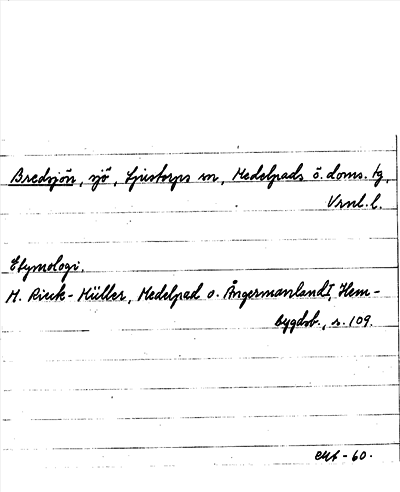 Bredsjön, sjö, Ljustorps sn, Medelpads ö. doms. tg,
Vrnl. l.
Etymologi.
M. Rieck-Müller, Medelpad o. Ångermanland I, Hem-
bygdsb., s. 109.
-60.